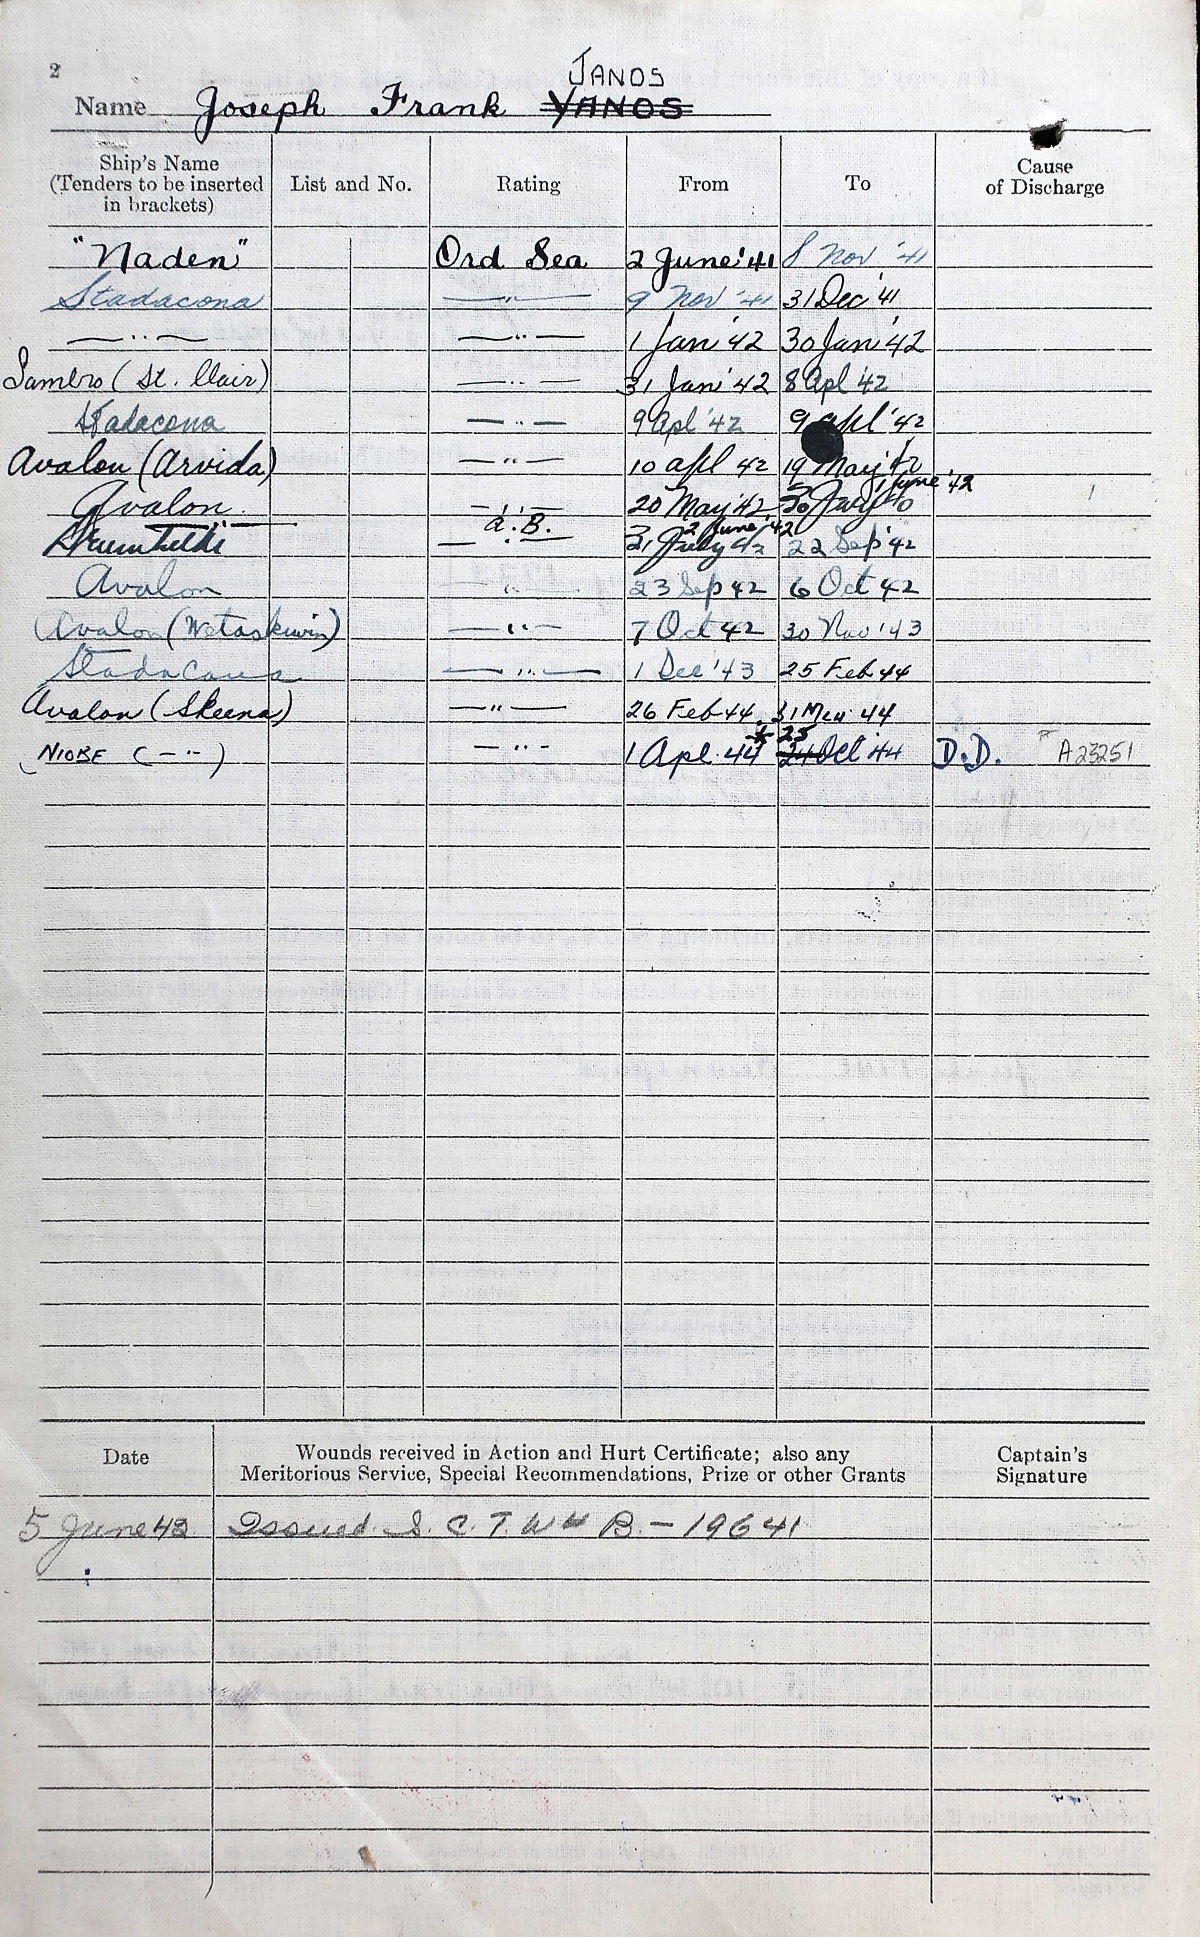 2
JANOS
Name Joseph Frank YANOS
Ship's Name (Tenders to be inserted in brackets) List and No. Rating From To Cause of Discharge
"Naden" Ord Sea 2 June '41 8 Nov '41
Stadacona —"— 9 Nov '41 31 Dec '41
—"— —"— 1 Jan '42 30 Jan '42
Sambro (St. Clair) —"— 31 Jan '42 8 Apl '42
Stadacona —"— 9 Apl '42 9 Apl '42
Avalon (Arvida) —"— 10 Apl 42 19 May '42
1 June '42
Avalon —"— 20 May '42
A.B. 2 June '42
—"— 21 July 42 22 Sep '42
Avalon " 23 Sep 42 6 Oct 42
Avalon (Wetaskiwin) —"— 7 Oct 42 30 Nov '43
Stadacona —"— 1 Dec '43 25 Feb 44
Avalon (Skeena) —"— 26 Feb 44 31 Mar 44
* 25
NIOBE (—"—) —"— 1 Apl. 44 24 Oct '44 D.D. A23251
Date Wounds received in Action and Hurt Certificate; also any Meritorious Service, Special Recommendations, Prize or other Grants Captain's Signature
5 June 43 Issued S. C. T. W W B. – 19641